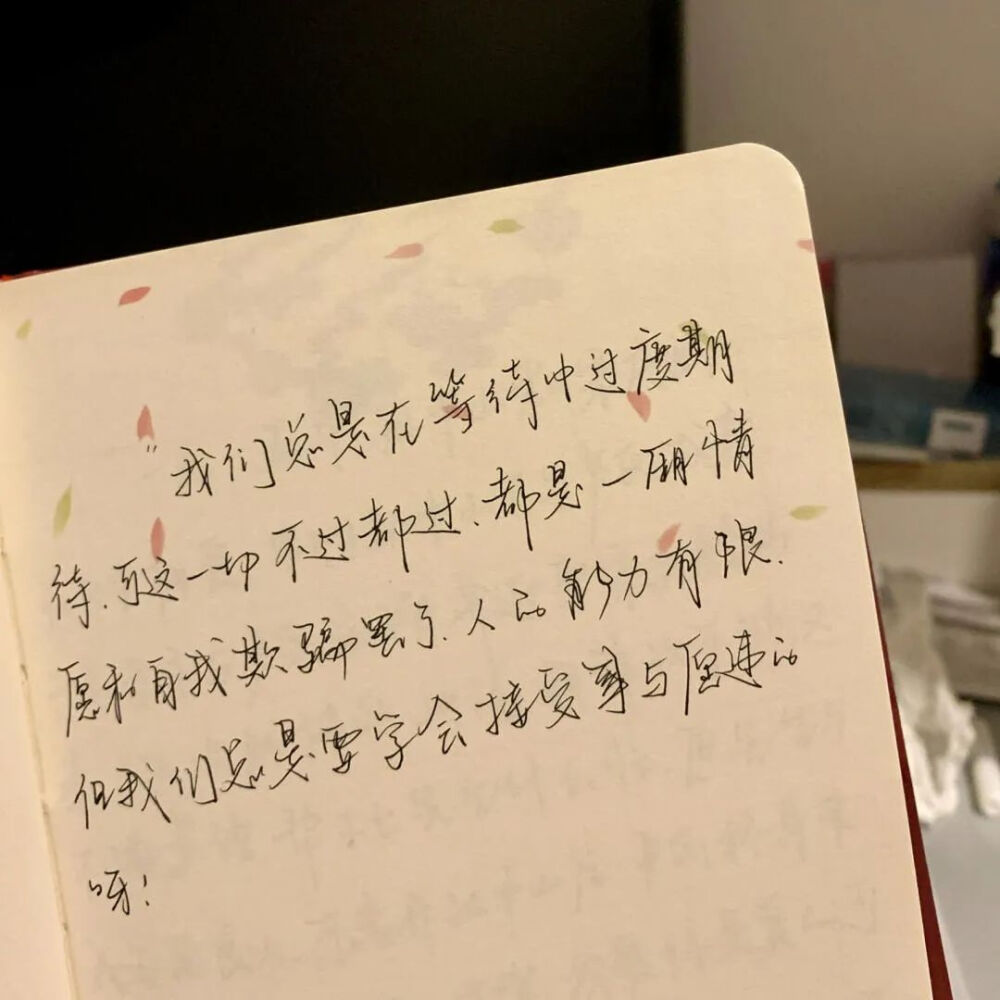 "我们总是在等待中过度期
待.可这一切不过都过.都是一厢情
愿和自我欺骗罢了.人的能力有限.
但我们总是要学会接受事与愿违的
呀!